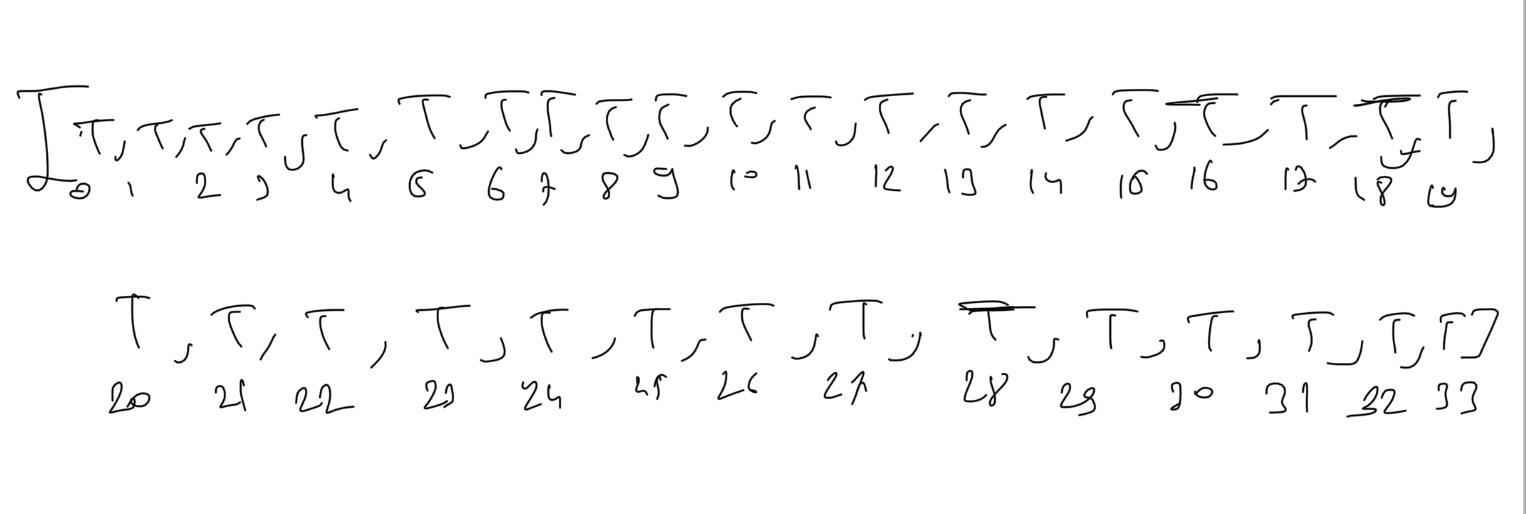 [T, T, T, T, T, T, T, T, T, T, T, T, T, T, T, T, T, T, T, T,
0 1 2 3 4 5 6 7 8 9 10 11 12 13 14 15 16 17 18 19
T, T, T, T, T, T, T, T, T, T, T, T, T, T]
20 21 22 23 24 25 26 27 28 29 30 31 32 33